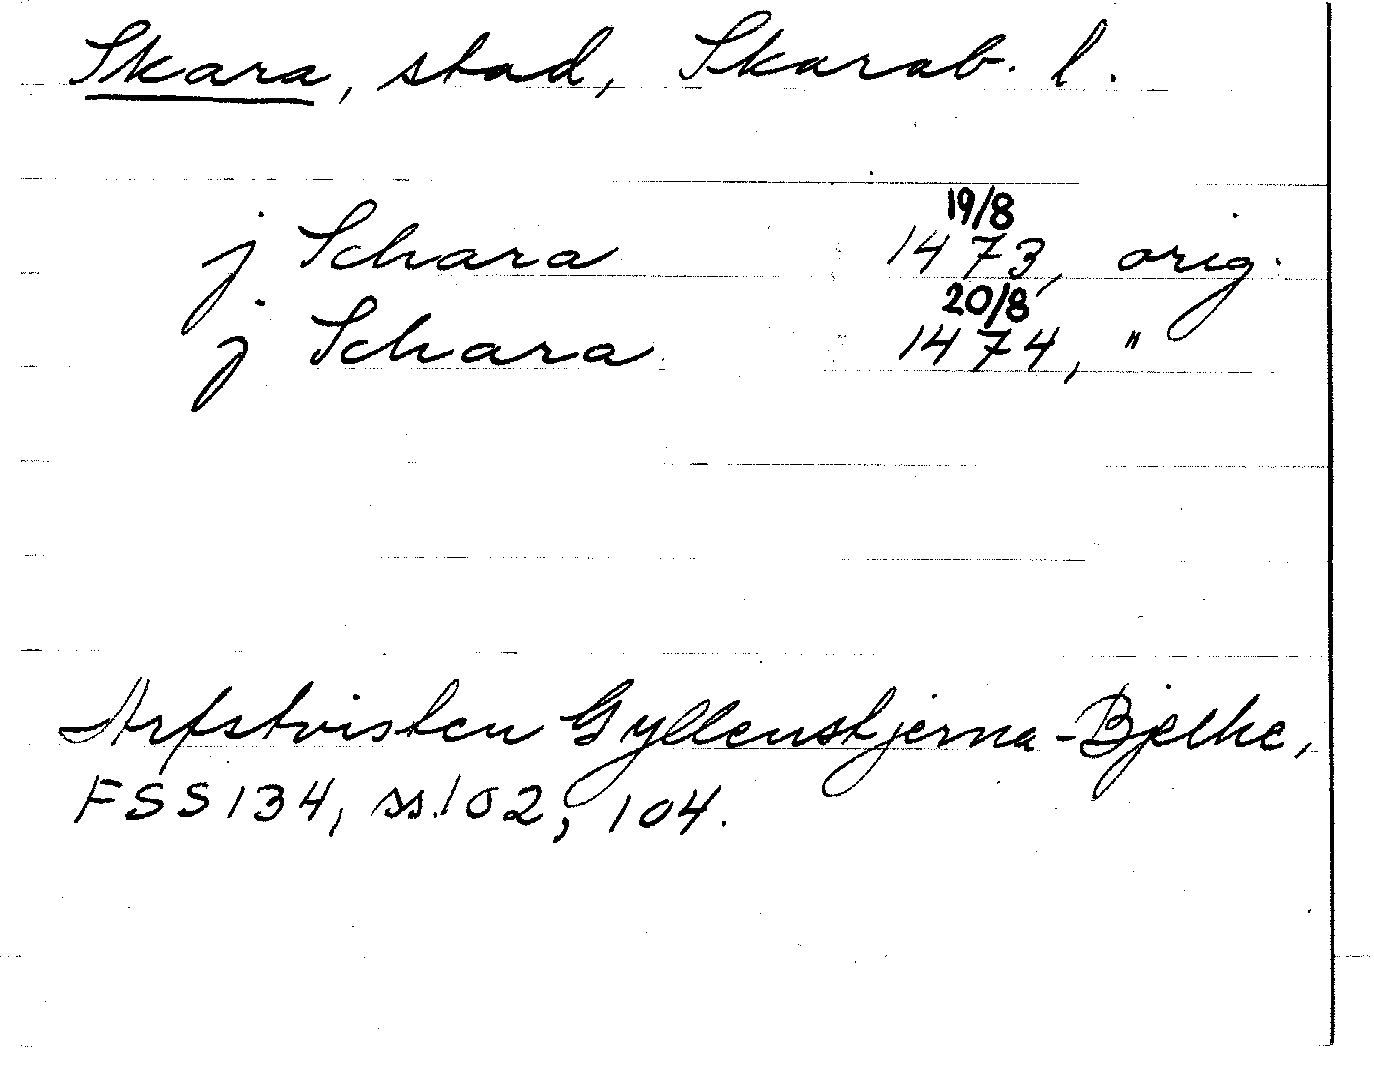 Skara, stad, Skarab. l.
19/8
j Schara 1473, orig.
20/8
j Schara 1474, "
Arfstvisten Gyllenstjerna-Bjelke,
FSS 134, ss. 102, 104.